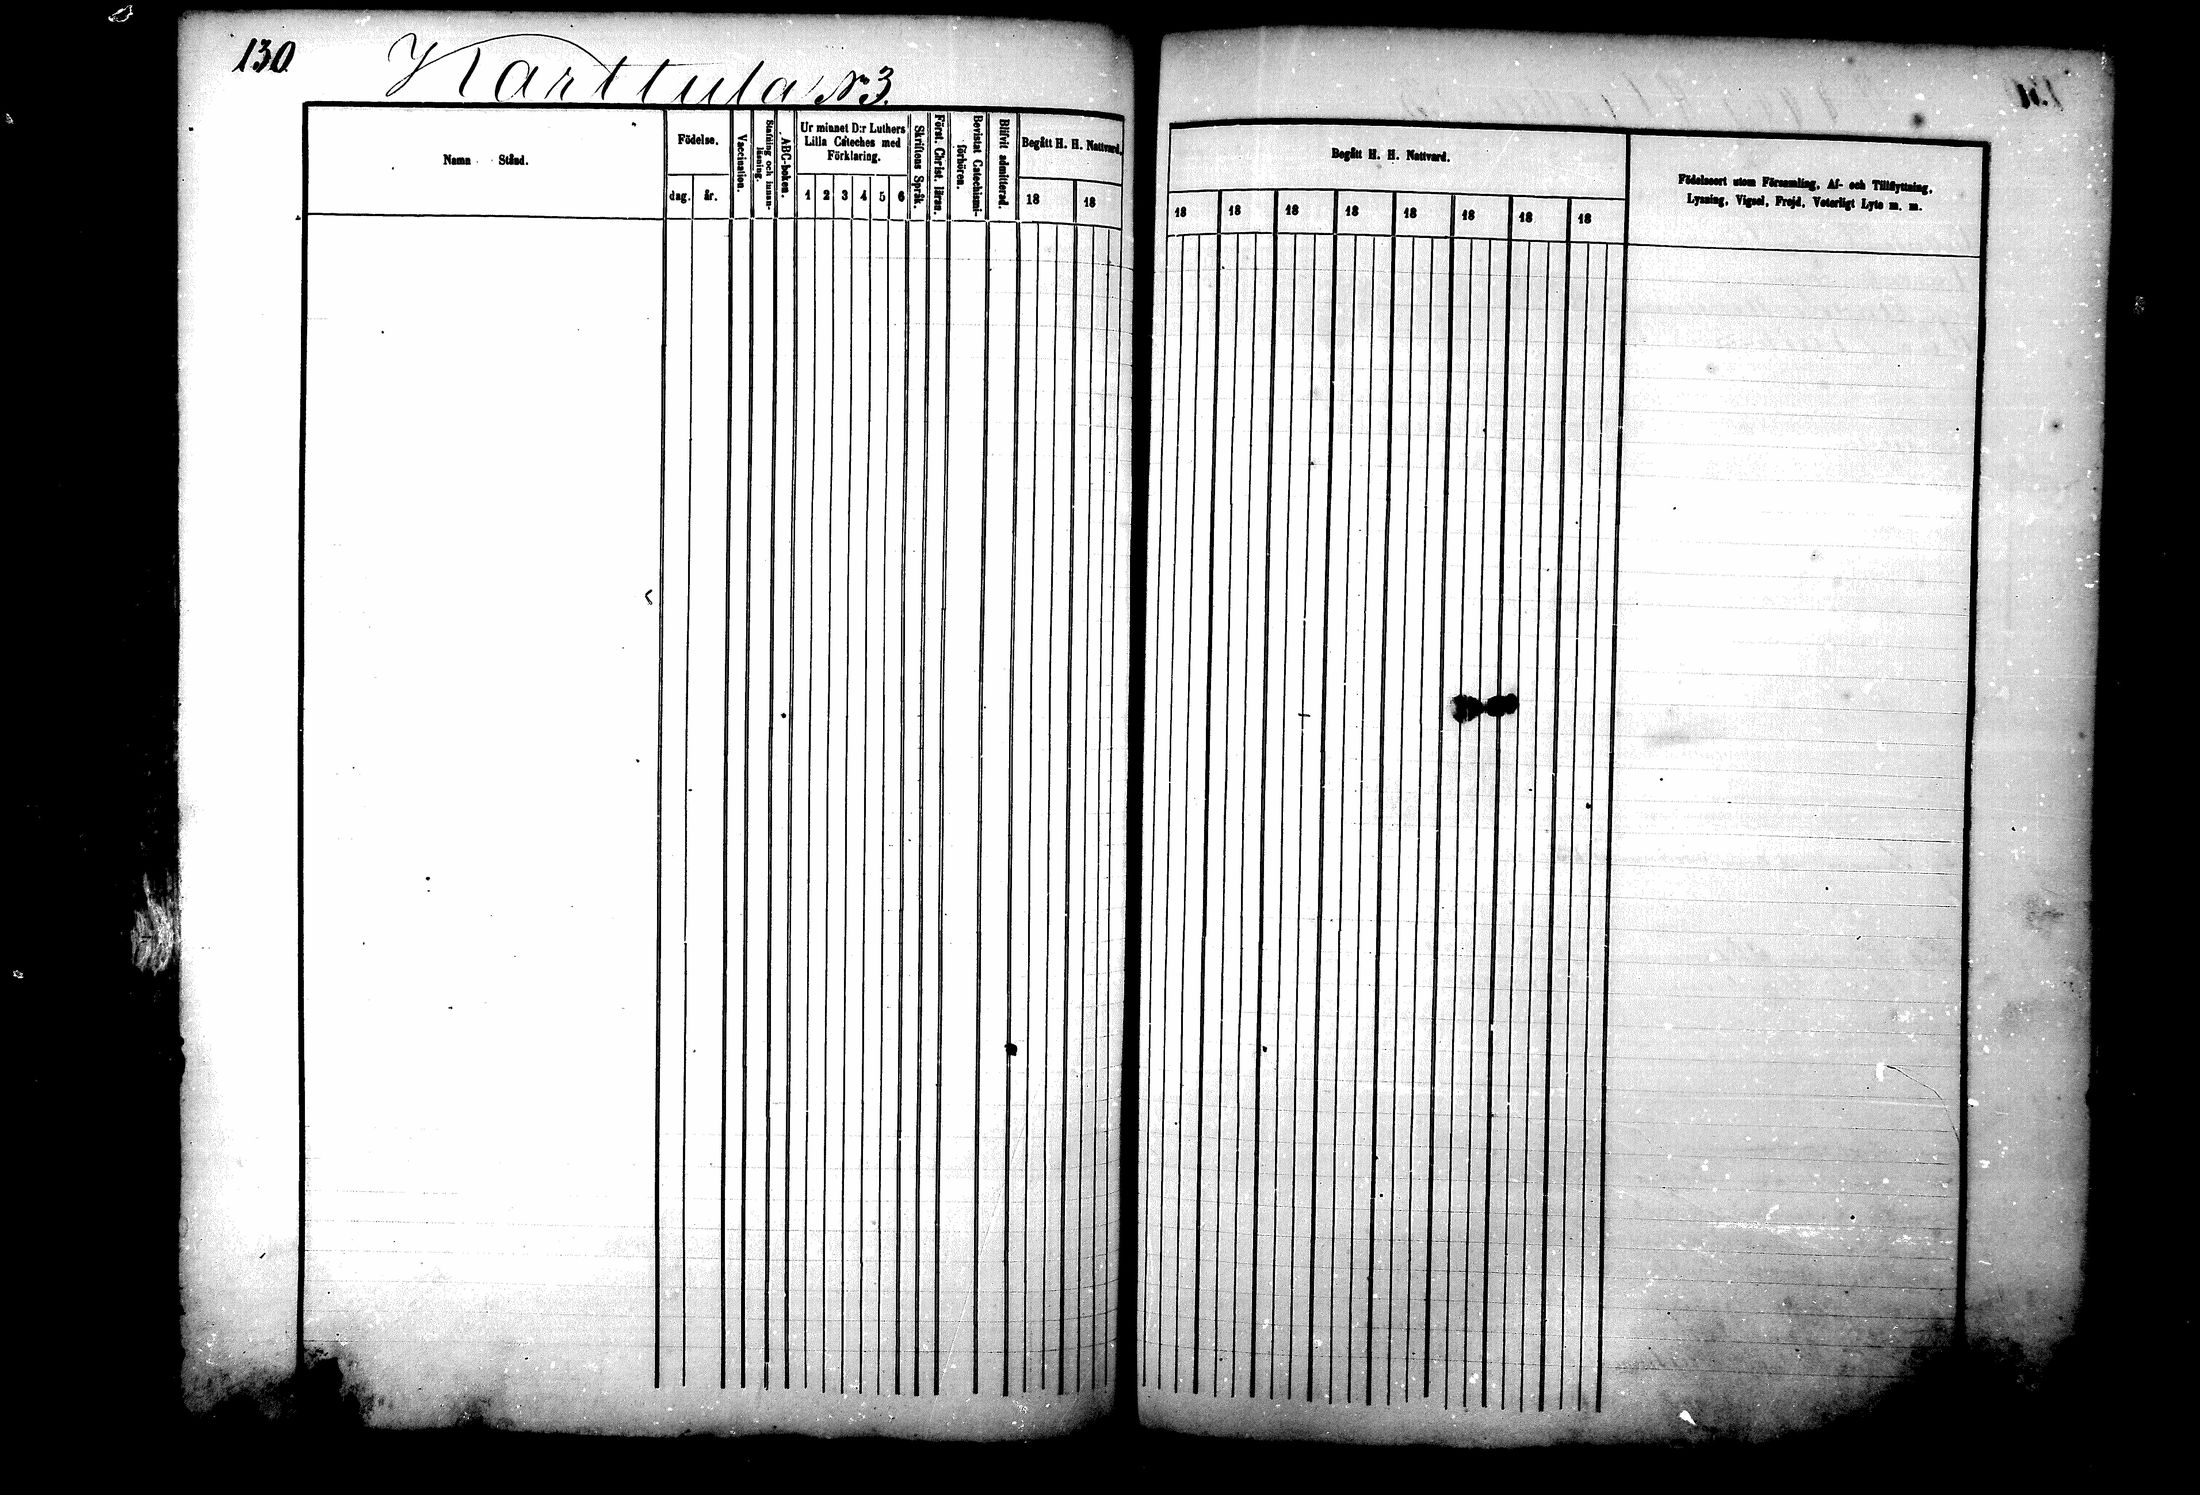 130
Karttula N:o 3.
Namn Stånd.
Födelse.
dag.
år.
Vaccination.
Stafning och innan-
läsning.
ABC-boken.
Ur minnet D:r Luthers
Lilla Cateches med
Förklaring.
1 2 3 4 5 6
Skriftens Språk.
Först. Christ. läran.
Bevistat Catechismi-
förhören.
Blifvit admitterad.
Begått H. H. Nattvard.
18 18
Begått H. H. Nattvard.
18 18 18 18 18 18 18 18
Födelseort utom Församling, Af- och Tillflyttning,
Lysning, Vigsel, Frejd, Veterligt Lyte m. m.